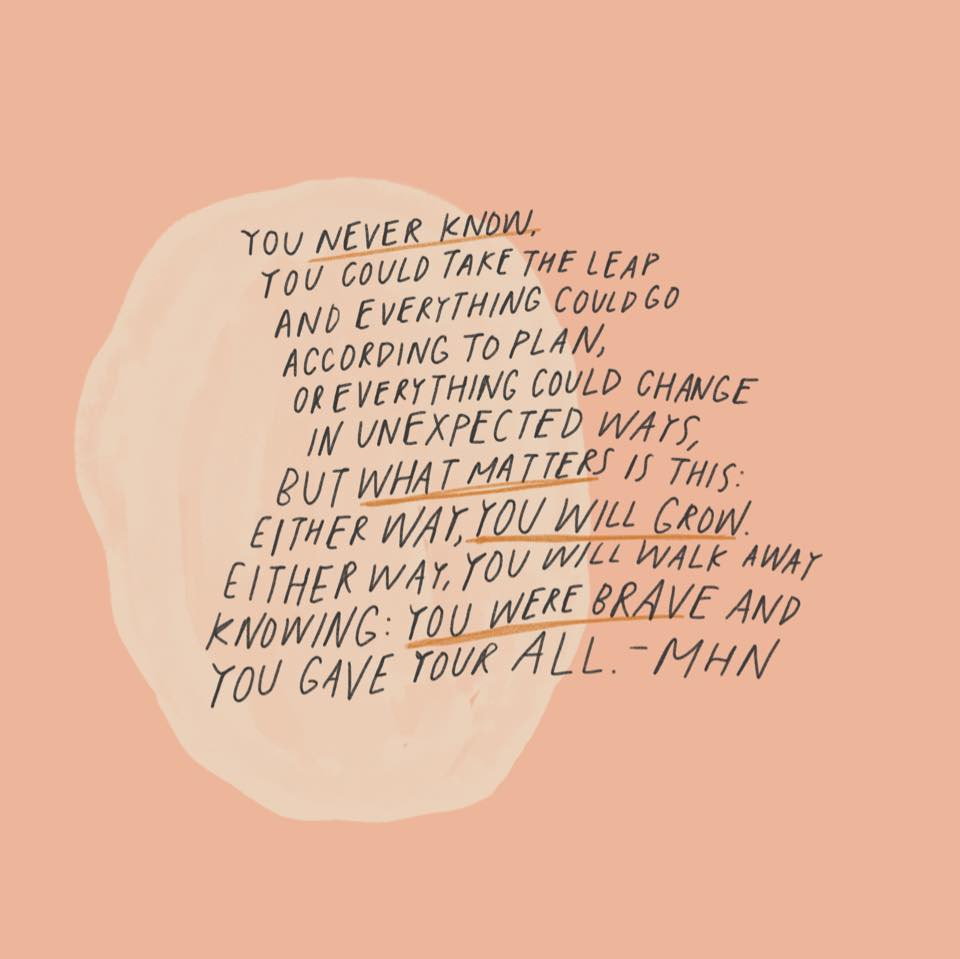 YOU NEVER KNOW,
YOU COULD TAKE THE LEAP
AND EVERYTHING COULD GO
ACCORDING TO PLAN,
OR EVERYTHING COULD CHANGE
IN UNEXPECTED WAYS,
BUT WHAT MATTERS IS THIS:
EITHER WAY, YOU WILL GROW.
EITHER WAY, YOU WILL WALK AWAY
KNOWING: YOU WERE BRAVE AND
YOU GAVE YOUR ALL. -MHN